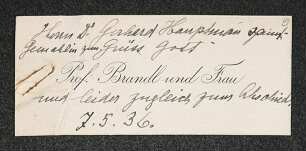 Herrn Dr Gerhard Hauptman samt
Gemahlin zum Grüss Gott
Prof. Brandl und Frau
und leider zugleich zum Abschied,
7.5.36.